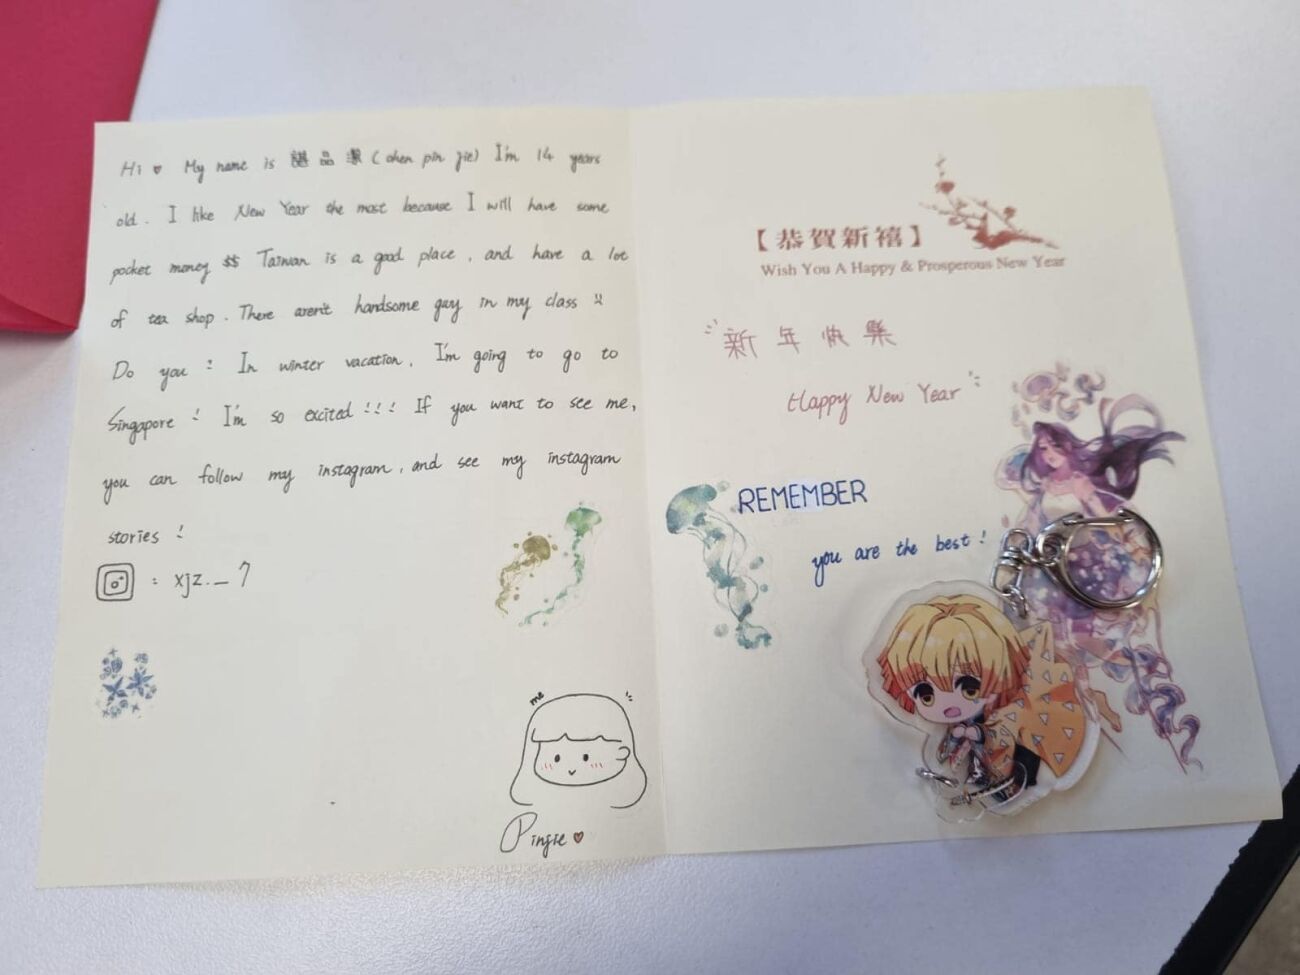 Hi ♥ My name is 諶品潔 (chen pin jie) I'm 14 years
old. I like New Year the most because I will have some
pocket money $$ Taiwan is a good place, and have a lot
of tea shop. There aren't handsome guy in my class
Do you : In winter vacation, I'm going to go to
Singapore ! I'm so excited !!! If you want to see me,
you can follow my instagram, and see my instagram
stories !
: xjz._7
me
Pinjie ♥
【恭賀新禧】
Wish You A Happy & Prosperous New Year
新年快樂
Happy New Year
REMEMBER
you are the best !